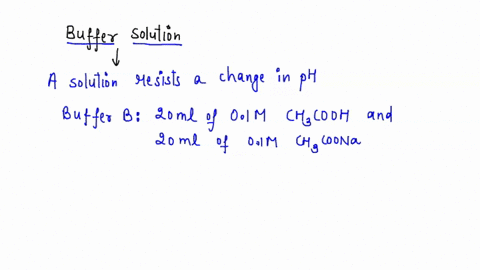 Buffer Solution
A solution resists a change in pH
Buffer B: 20ml of 0.1M CH3COOH and
20ml of 0.1M CH3COONa